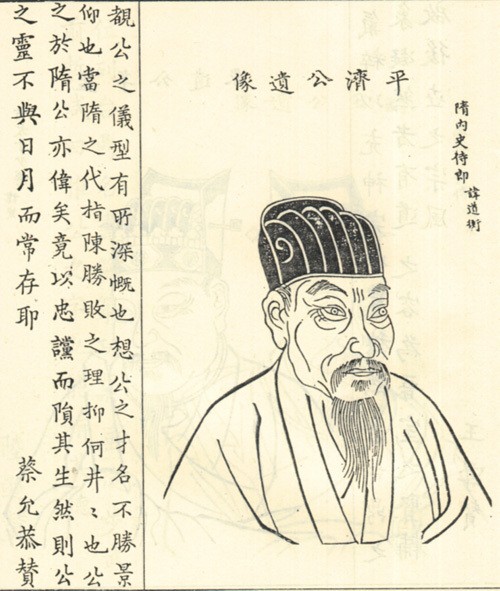 平濟公遺像
隋內史侍郎 諱道衡
覩公之儀型有所深慨也想公之才名不勝景
仰也當隋之代指陳勝敗之理抑何井〻也公
之於隋公亦偉矣竟以忠讜而隕其生然則公
之靈不與日月而常存耶 蔡允恭贊